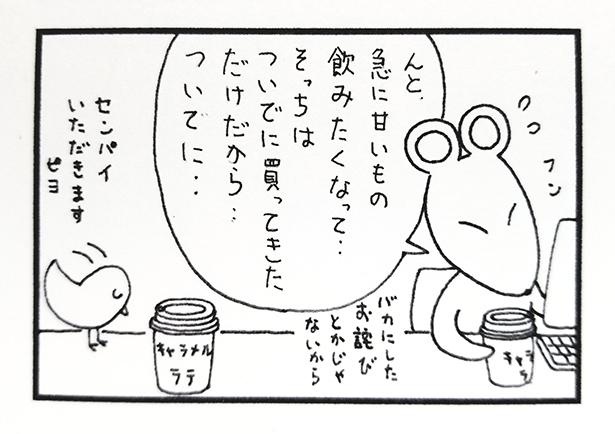 んと、
急に甘いもの
飲みたくなって‥
そっちは
ついでに買ってきた
だけだから‥
ついでに‥
フン
バカにした
お詫び
とかじゃ
ないから
センパイ
いただきます
ピヨ
キャラメル
ラテ
キャラ
ラ